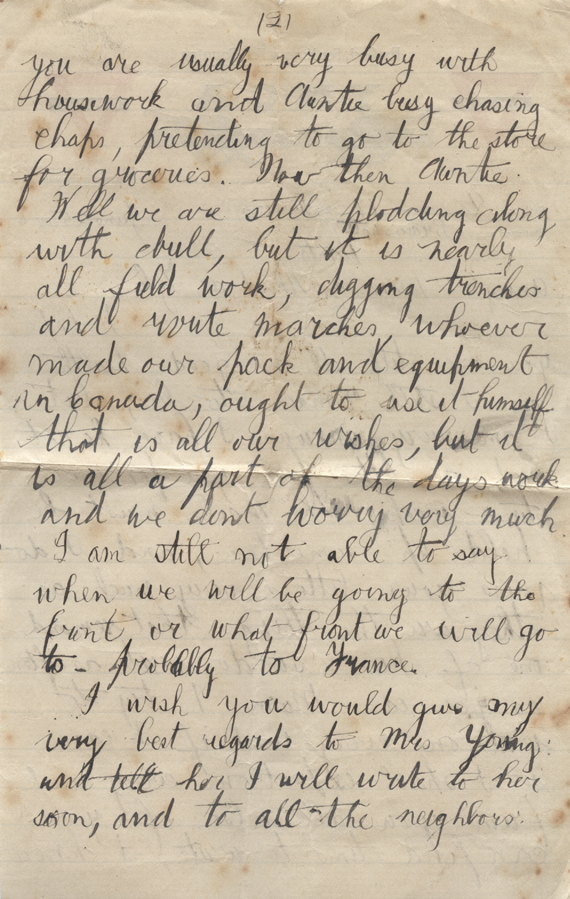 121
you are usually very busy with
housework and Auntie busy chasing
chaps, pretending to go to the store
for groceries. Now then Auntie.
Well we are still plodding along
with drill, but it is nearly
all field work, digging trenches
and route marches, whoever
made our pack and equipment
in Canada, ought to use it himself
that is all our wishes, but it
is all a part of the days work
and we dont worry very much
I am still not able to say
when we will be going to the
front or what front we will go
to - probably to France.
I wish you would give my
very best regards to Mrs Young.
and tell her I will write to her
soon, and to all the neighbors.